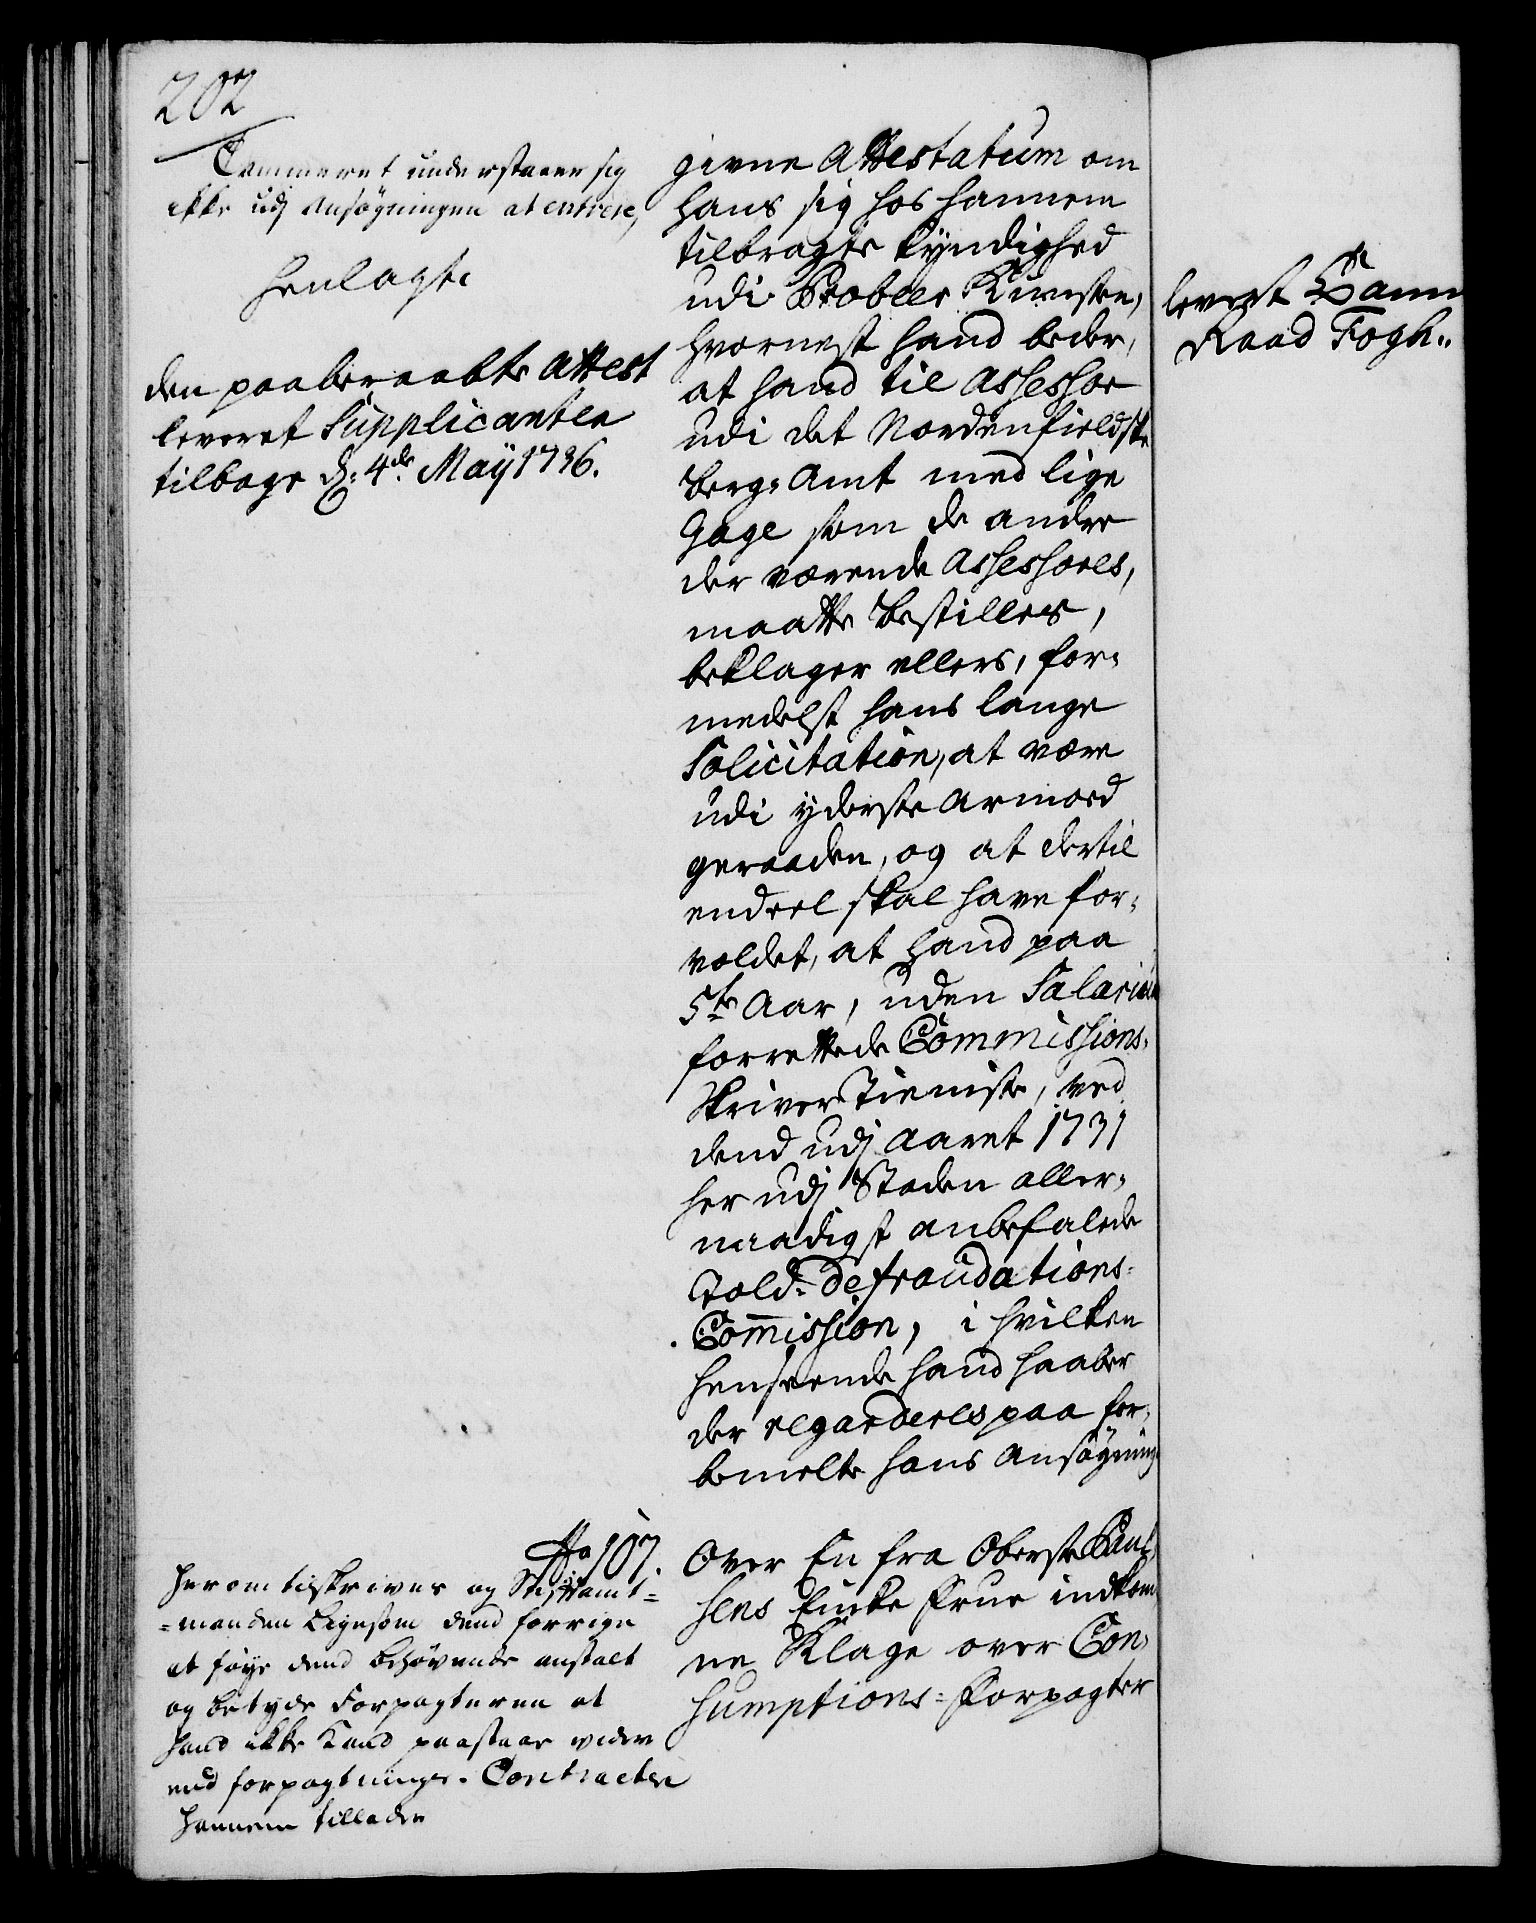 202
Cammeret understaaer sig
ikke udj Ansøgningen at entrere,
henlagt.
den paaberaabte Attest
leveret Supplicanten
tilbage d: 4de May 1736.
givne Attestatum om
hans sig hos hannem
tilbragte kyndighed
udi Probeer Kunsten,
hvornest hand beder,
at hand til Assessor
udi det Nordenfieldske
Berg-Amt med lige
Gage som de andre
der værende Assessores,
maatte bestilles,
beklager ellers, for-
medelst hans lange
Solicitation, at være
udi yderste Armoed
geraaden, og at dertil
endeel skal have for-
voldet, at hand paa
5te Aar, uden Salarium
forrettede Commissions-
Skriver Tieniste, ved
dend udj Aaret 1731
her udj Staden aller-
naadigst anbefalede
Told-defraudations-
Commission, i hvilken
henseende hand haaber
der regarderes paa for-
bemelte hans Ansøgning
leveret Cam̅
Raad Fogh..
No 107.
herom tilskrives og Stiftamt-
-manden ligesom dend forrige
at føye dend behøvende anstalt
og betyde Forpagteren at
hand ikke kand paastaae videre
end forpagtnings-Contracten
hannem tillader
Over En fra Oberste
sens Encke Frue indkom
ne Klage over Con-
sumptions-Forpagter